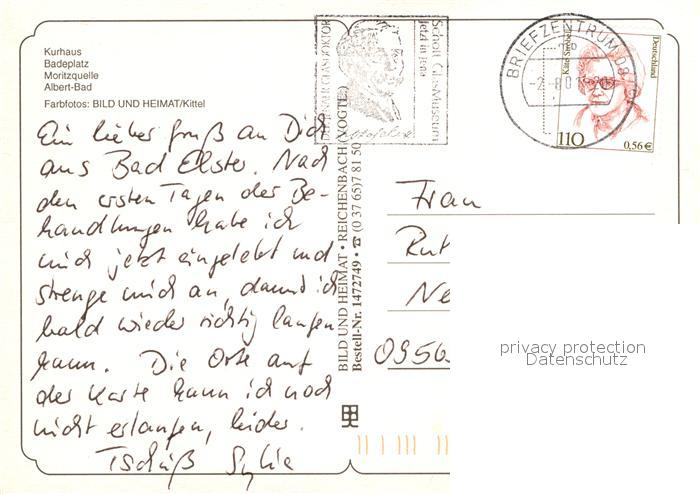 Kurhaus
Badeplatz
Moritzquelle
Albert-Bad
Farbfotos: BILD UND HEIMAT/Kittel
Ein lieber Gruß an Dich
aus Bad Elster. Nach
den ersten Tagen der Be-
handlungen habe ich
mich jetzt eingelebt und
strenge mich an, damit ich
bald wieder richtig laufen
kann. Die Orte auf
der Karte kann ich noch
nicht erlangen, leider.
Tschüß Sylvia
BILD UND HEIMAT • REICHENBACH (VOGTL.)
Bestell-Nr. 1472749 • ☎ (0 37 65) 7 81 50
Schott GlasMuseum
Jetzt in Jena
BRIEFZENTRUM 08
Deutschland
110
0,56 €
Frau
Rut
Ne
0956
privacy protection
Datenschutz